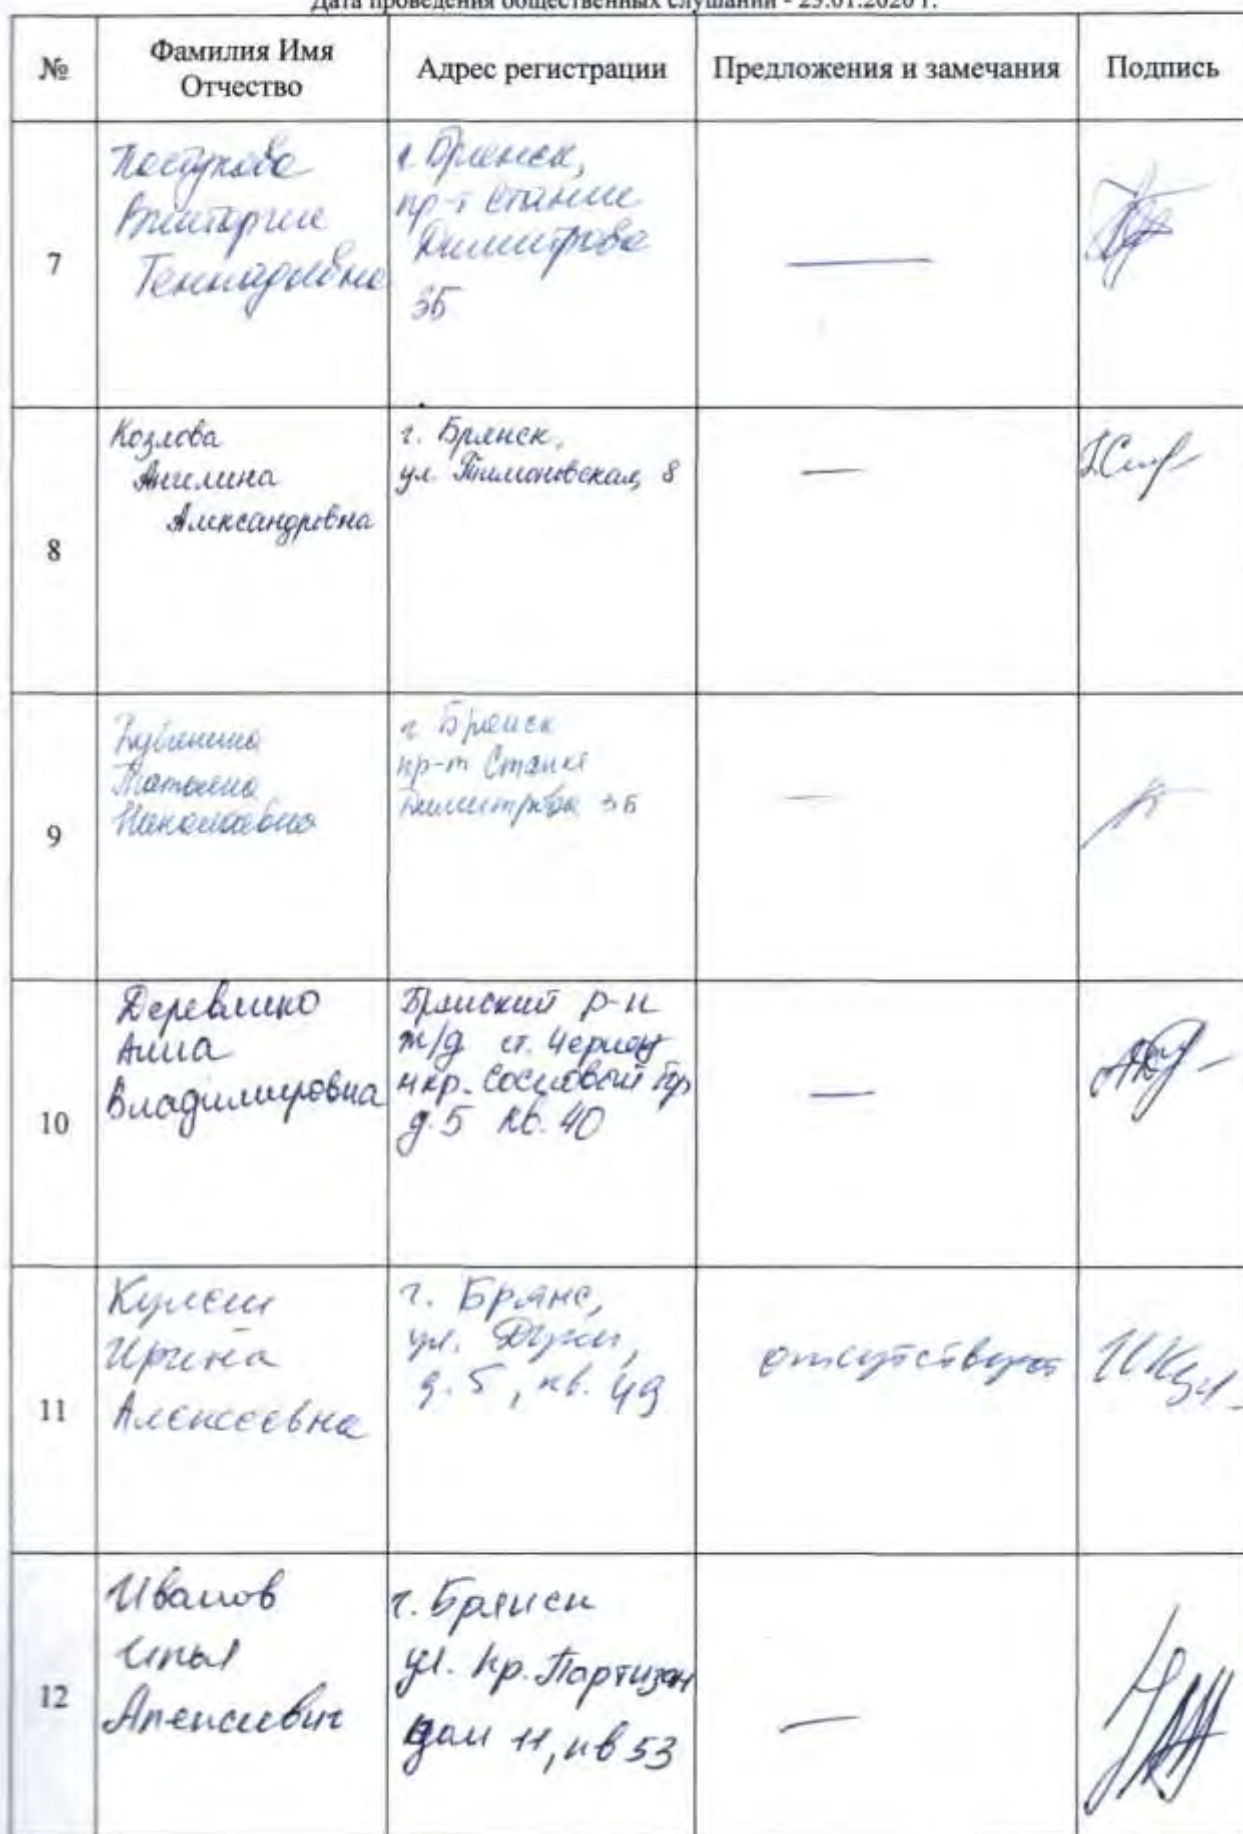 Дата проведения общественных слушаний - 29.01.2020 г.
№
Фамилия Имя
Отчество
Адрес регистрации
Предложения и замечания
Подпись
7
Пастухова
Виктория
Геннадьевна
г Брянск,
пр-т Станке
Димитрова
3Б
—
8
Козлова
Ангелина
Александровна
г. Брянск,
ул. Тимоновская, 8
—
9
Татьяна
Николаевна
г Брянск
пр-т Станке
Димитрова 3Б
—
10
Деревянко
Анна
Владимировна
Брянский р-н
ж/д ст.
мкр. Сосновый бор
д.5 кв. 40
—
11
Кулеш
Ирина
Алексеевна
г. Брянс,
ул. Дуки,
д. 5, кв. 49
отсутствуют
12
Иванов
Илья
Алексеевич
г. Брянск
ул. Кр. Партизан
дом 11, кв 53
—